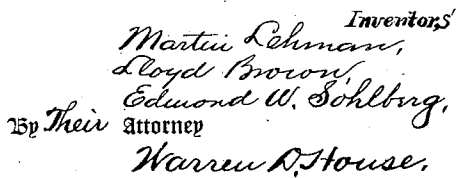 Inventors
Martin Lehman,
Lloyd Brown,
Edmond W. Sohlberg,
By Their Attorney
Warren D. House.